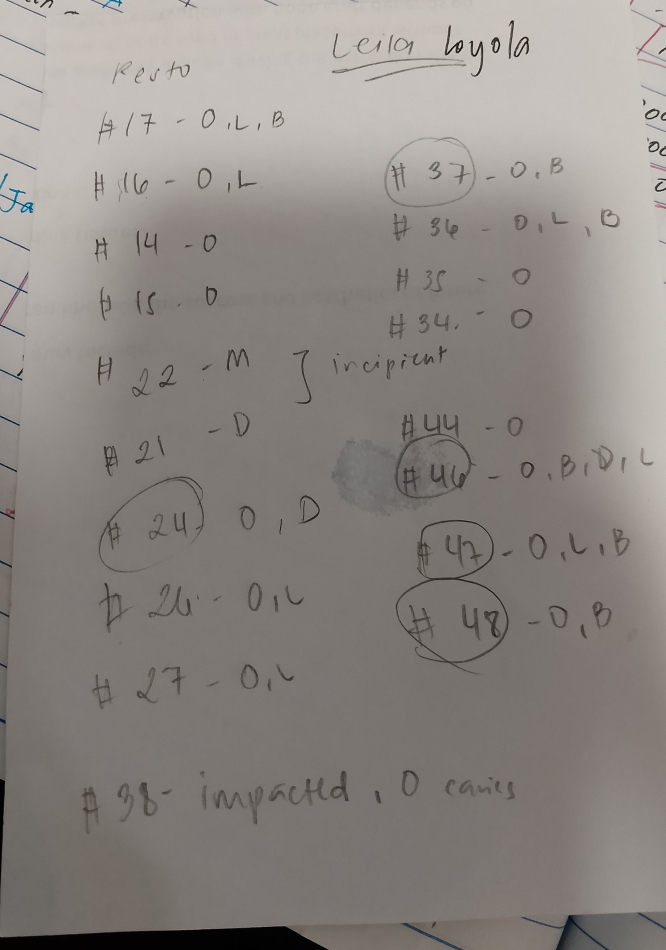 Leila Loyola
Resto
#17 - O, L, B
#16 - O, L
#14 - O
#15 - O
#22 - M ] incipient
#21 - D
#24 O, D
#26 - O, L
#27 - O, L
#37 - O, B
#36 - O, L, B
#35 - O
#34. - O
#44 - O
#46 - O, B, D, L
#47 - O, L, B
#48 - O, B
#38 - impacted, O caries